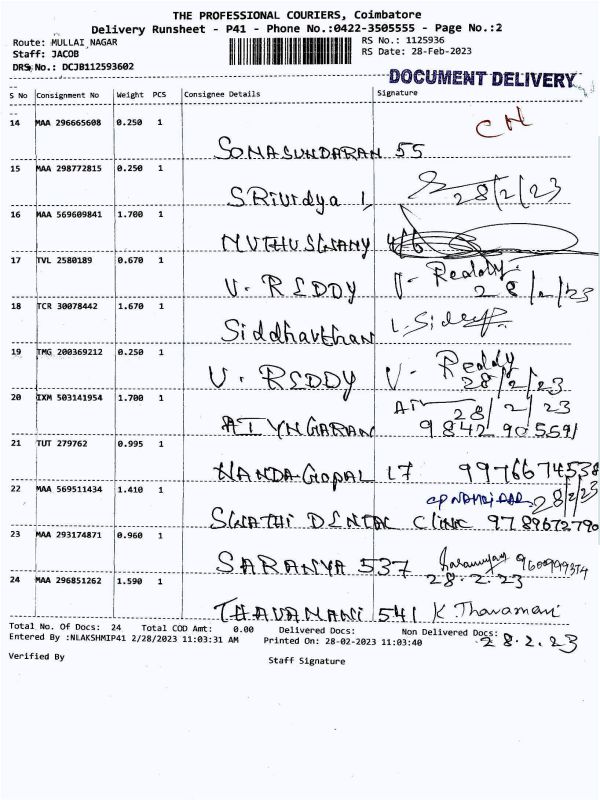 THE PROFESSIONAL COURIERS, Coimbatore
Delivery Runsheet - P41 - Phone No.:0422-3505555 - Page No.:2
Route: MULLAI NAGAR
RS No.: 1125936
Staff: JACOB
RS Date: 28-Feb-2023
DRS No.: DCJB112593602
DOCUMENT DELIVERY
S No Consignment No Weight PCS Consignee Details Signature
14 MAA 296665608 0.250 1
CN
SOMASUNDARAN 55
15 MAA 298772815 0.250 1
SRividya 1, 28/2/23
16 MAA 569609841 1.700 1
MUTHUSWAMY
17 TVL 2580189 0.670 1
V. REDDY V. Readdy
18 TCR 30078442 1.670 1
Siddharthan
19 TMG 200369212 0.250 1
V. REDDY V. Readdy
28/2/23
20 IXM 503141954 1.700 1
28/2/23
AIYNGARAN 9842905591
21 TUT 279762 0.995 1
NANDAGOPAL 17 9976674538
22 MAA 569511434 1.410 1
28/2/23
SWATHI DENTAL CLINIC 9789672790
23 MAA 293174871 0.960 1
SARANYA 537
28.2.23
24 MAA 296851262 1.590 1
THAVAMANI 541 K Thavamani
Total No. Of Docs: 24 Total COD Amt: 0.00 Delivered Docs: Non Delivered Docs:
28.2.23
Entered By :NLAKSHMIP41 2/28/2023 11:03:31 AM Printed On: 28-02-2023 11:03:40
Verified By
Staff Signature